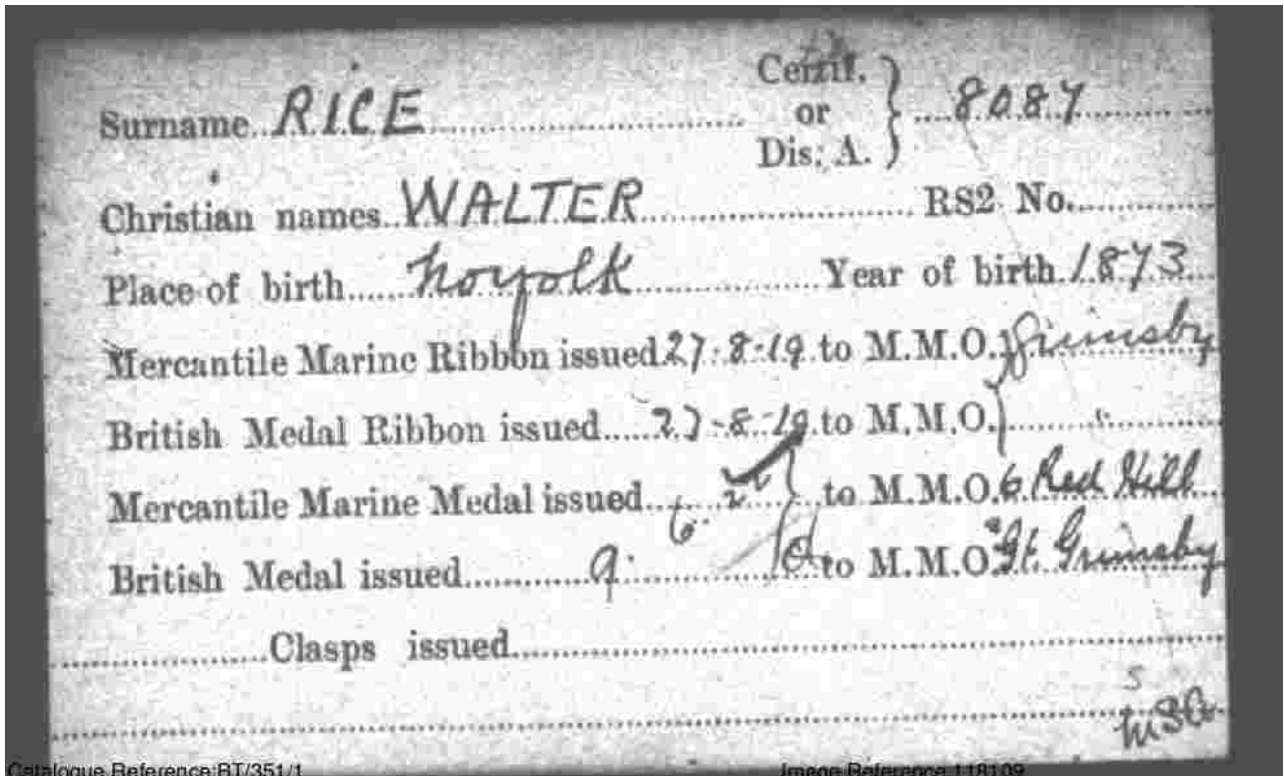 Surname RICE Certif. or Dis. A. } 8087
Christian names WALTER RS2 No.
Place of birth Norfolk Year of birth 1873
Mercantile Marine Ribbon issued 27-8-19 to M.M.O. Grimsby
British Medal Ribbon issued 27-8-19 to M.M.O. "
Mercantile Marine Medal issued to M.M.O. 6 Red Hill
British Medal issued 9. 6. 22 to M.M.O. Gt. Grimsby
Clasps issued
Catalogue Reference:BT/351/1 Image Reference:118109